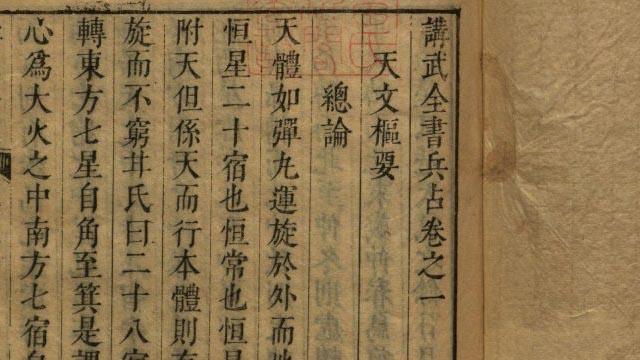 講武全書兵占卷之一
天文樞要
總論
天體如彈丸運旋於外而地
恒星二十宿也恒常也恒星
附天但係天而行本體則有
旋而不窮甘氏曰二十八宿
轉東方七星自角至箕是謂
心為大火之中南方七宿自